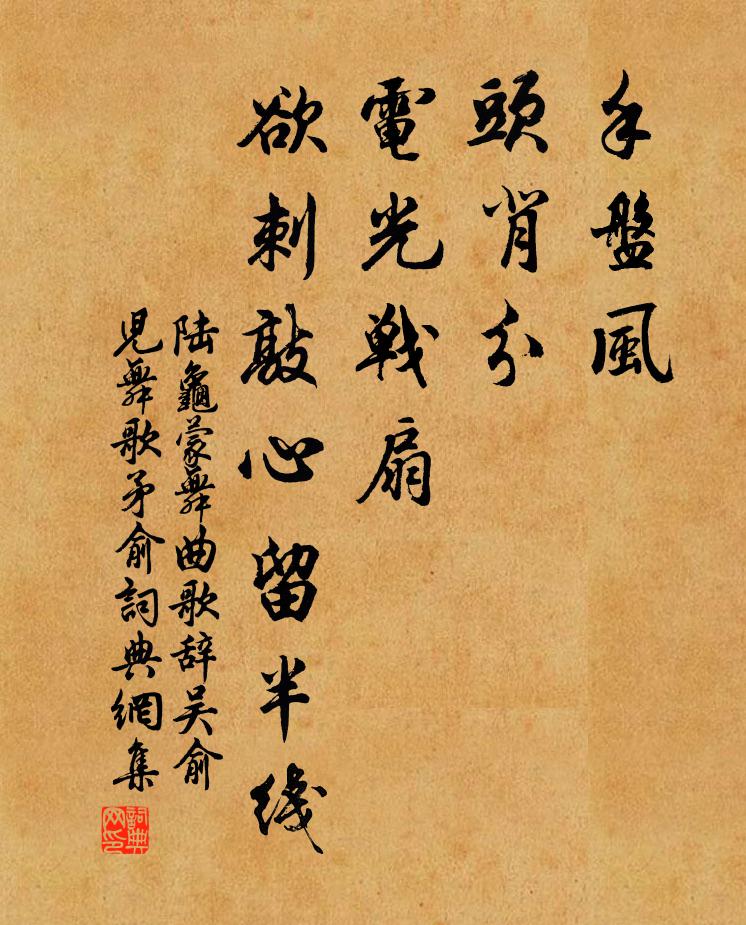 手盤風
頭背分
電光戰扇
欲刺敲心留半线
陆龜蒙舞曲歌辞吴俞
児舞歌矛俞詞典網集
詞典网印